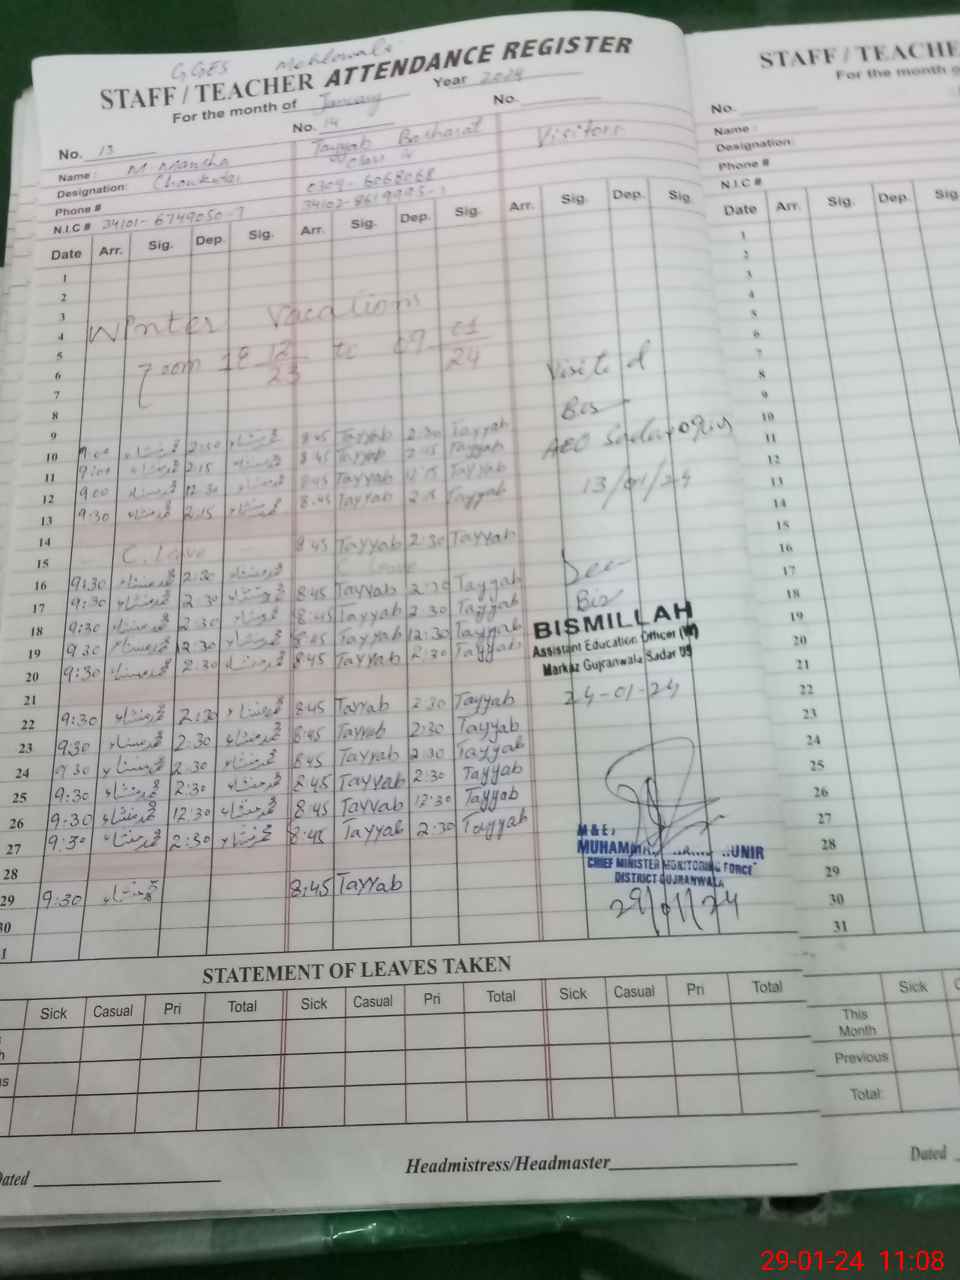 GGES Mehlowala
STAFF / TEACHER ATTENDANCE REGISTER
For the month of January Year 2024
No. 13 No. 14 No.
Name : M. Mansha Tayyab Basharat Visitors
Designation: Chowkidar Class iv
Phone # 0304-6068068
N.I.C # 34101-6749050-7 34102-8619995-1
Date Arr. Sig. Dep. Sig. Arr. Sig. Dep. Sig. Arr. Sig. Dep. Sig.
1
2
3
4 Winter Vacations
5 from 18 12/23 to 09 01/24
6
7
8
9
10 9:00 محمد منشاء 2:30 محمد منشاء 8:45 Tayyab 2:30 Tayyab
11 9:00 محمد منشاء 2:15 محمد منشاء 8:45 Tayyab 2:15 Tayyab
12 9:00 محمد منشاء 12:30 محمد منشاء 8:45 Tayyab 12:15 Tayyab
13 9:30 محمد منشاء 2:15 محمد منشاء 8:45 Tayyab 2:15 Tayyab
14
15 C. Leave 8:45 Tayyab 2:30 Tayyab
16 9:30 محمد منشاء 2:30 محمد منشاء C. Leave
17 9:30 محمد منشاء 2:30 محمد منشاء 8:45 Tayyab 2:30 Tayyab
18 9:30 محمد منشاء 2:30 محمد منشاء 8:45 Tayyab 2:30 Tayyab
19 9:30 محمد منشاء 12:30 محمد منشاء 8:45 Tayyab 12:30 Tayyab
20 9:30 محمد منشاء 2:30 محمد منشاء 8:45 Tayyab 2:30 Tayyab
21
22 9:30 محمد منشاء 2:30 محمد منشاء 8:45 Tayyab 2:30 Tayyab
23 9:30 محمد منشاء 2:30 محمد منشاء 8:45 Tayyab 2:30 Tayyab
24 9:30 محمد منشاء 2:30 محمد منشاء 8:45 Tayyab 2:30 Tayyab
25 9:30 محمد منشاء 2:30 محمد منشاء 8:45 Tayyab 2:30 Tayyab
26 9:30 محمد منشاء 12:30 محمد منشاء 8:45 Tayyab 12:30 Tayyab
27 9:30 محمد منشاء 2:30 محمد منشاء 8:45 Tayyab 2:30 Tayyab
28
29 9:30 محمد منشاء 8:45 Tayyab
30
1
Visited
Bis
AEO Sadar
13/01/24
Seen
Bis
BISMILLAH
Assistant Education Officer (W)
Markaz Gujranwala Sadar
24-01-24
M & E
MUHAMMAD
CHIEF MINISTER MONITORING FORCE
DISTRICT GUJRANWALA
29/01/24
STATEMENT OF LEAVES TAKEN
Sick Casual Pri Total Sick Casual Pri Total Sick Casual Pri Total
Dated
Headmistress/Headmaster
STAFF / TEACHE
For the month o
No.
Name :
Designation:
Phone #
N.I.C #
Date Arr. Sig. Dep. Sig
1
2
3
4
5
6
7
8
9
10
11
12
13
14
15
16
17
18
19
20
21
22
23
24
25
26
27
28
29
30
31
Sick C
This
Month
Previous
Total:
Dated
29-01-24 11:08